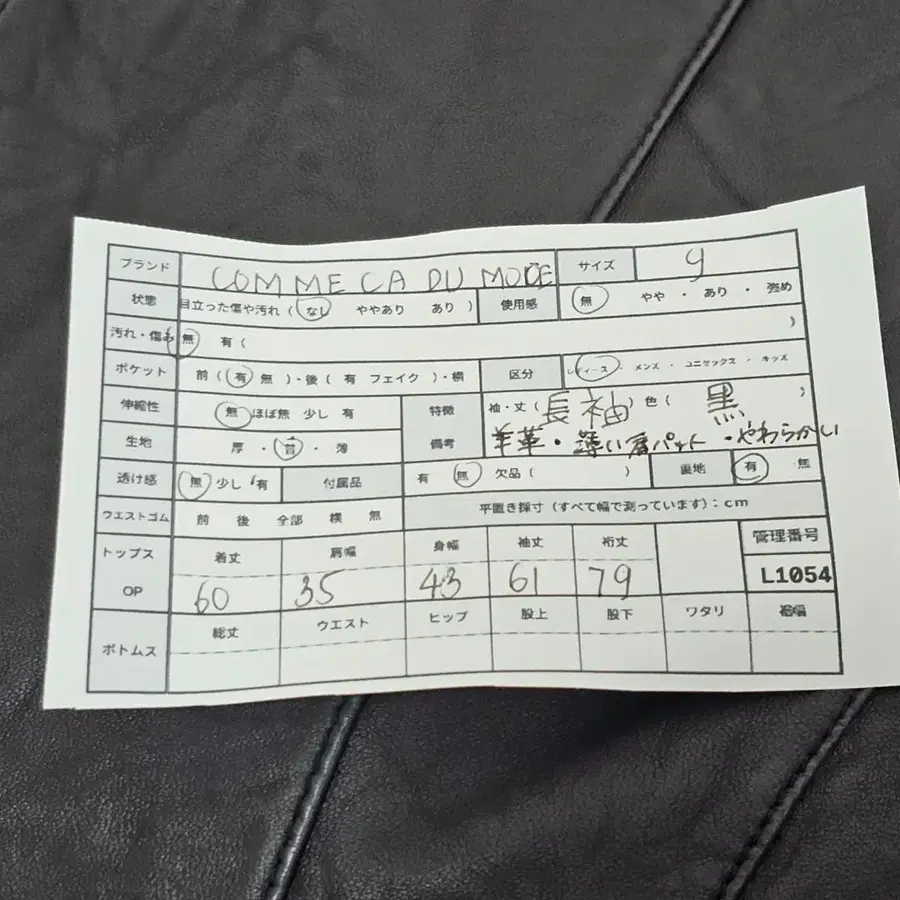 ブランド COMME CA DU MODE サイズ 9
状態 目立った傷や汚れ ( なし ややあり あり ) 使用感 無 やや ・ あり ・ 強め
汚れ・傷み 無 有 ( )
ポケット 前 ( 有 無 )・後 ( 有 フェイク )・横 区分 レディース ・ メンズ ・ ユニセックス ・ キッズ
伸縮性 無 ほぼ無 少し 有 特徴 袖・丈 ( 長袖 ) 色 ( 黒 )
生地 厚 ・ 普 ・ 薄 備考 羊革・薄い肩パット・やわらかい
透け感 無 少し 有 付属品 有 無 欠品 ( ) 裏地 有 無
ウエストゴム 前 後 全部 横 無 平置き採寸 (すべて幅で測っています) : cm
トップス 着丈 肩幅 身幅 袖丈 裄丈 管理番号
OP 60 35 43 61 79 L1054
ボトムス 総丈 ウエスト ヒップ 股上 股下 ワタリ 裾幅